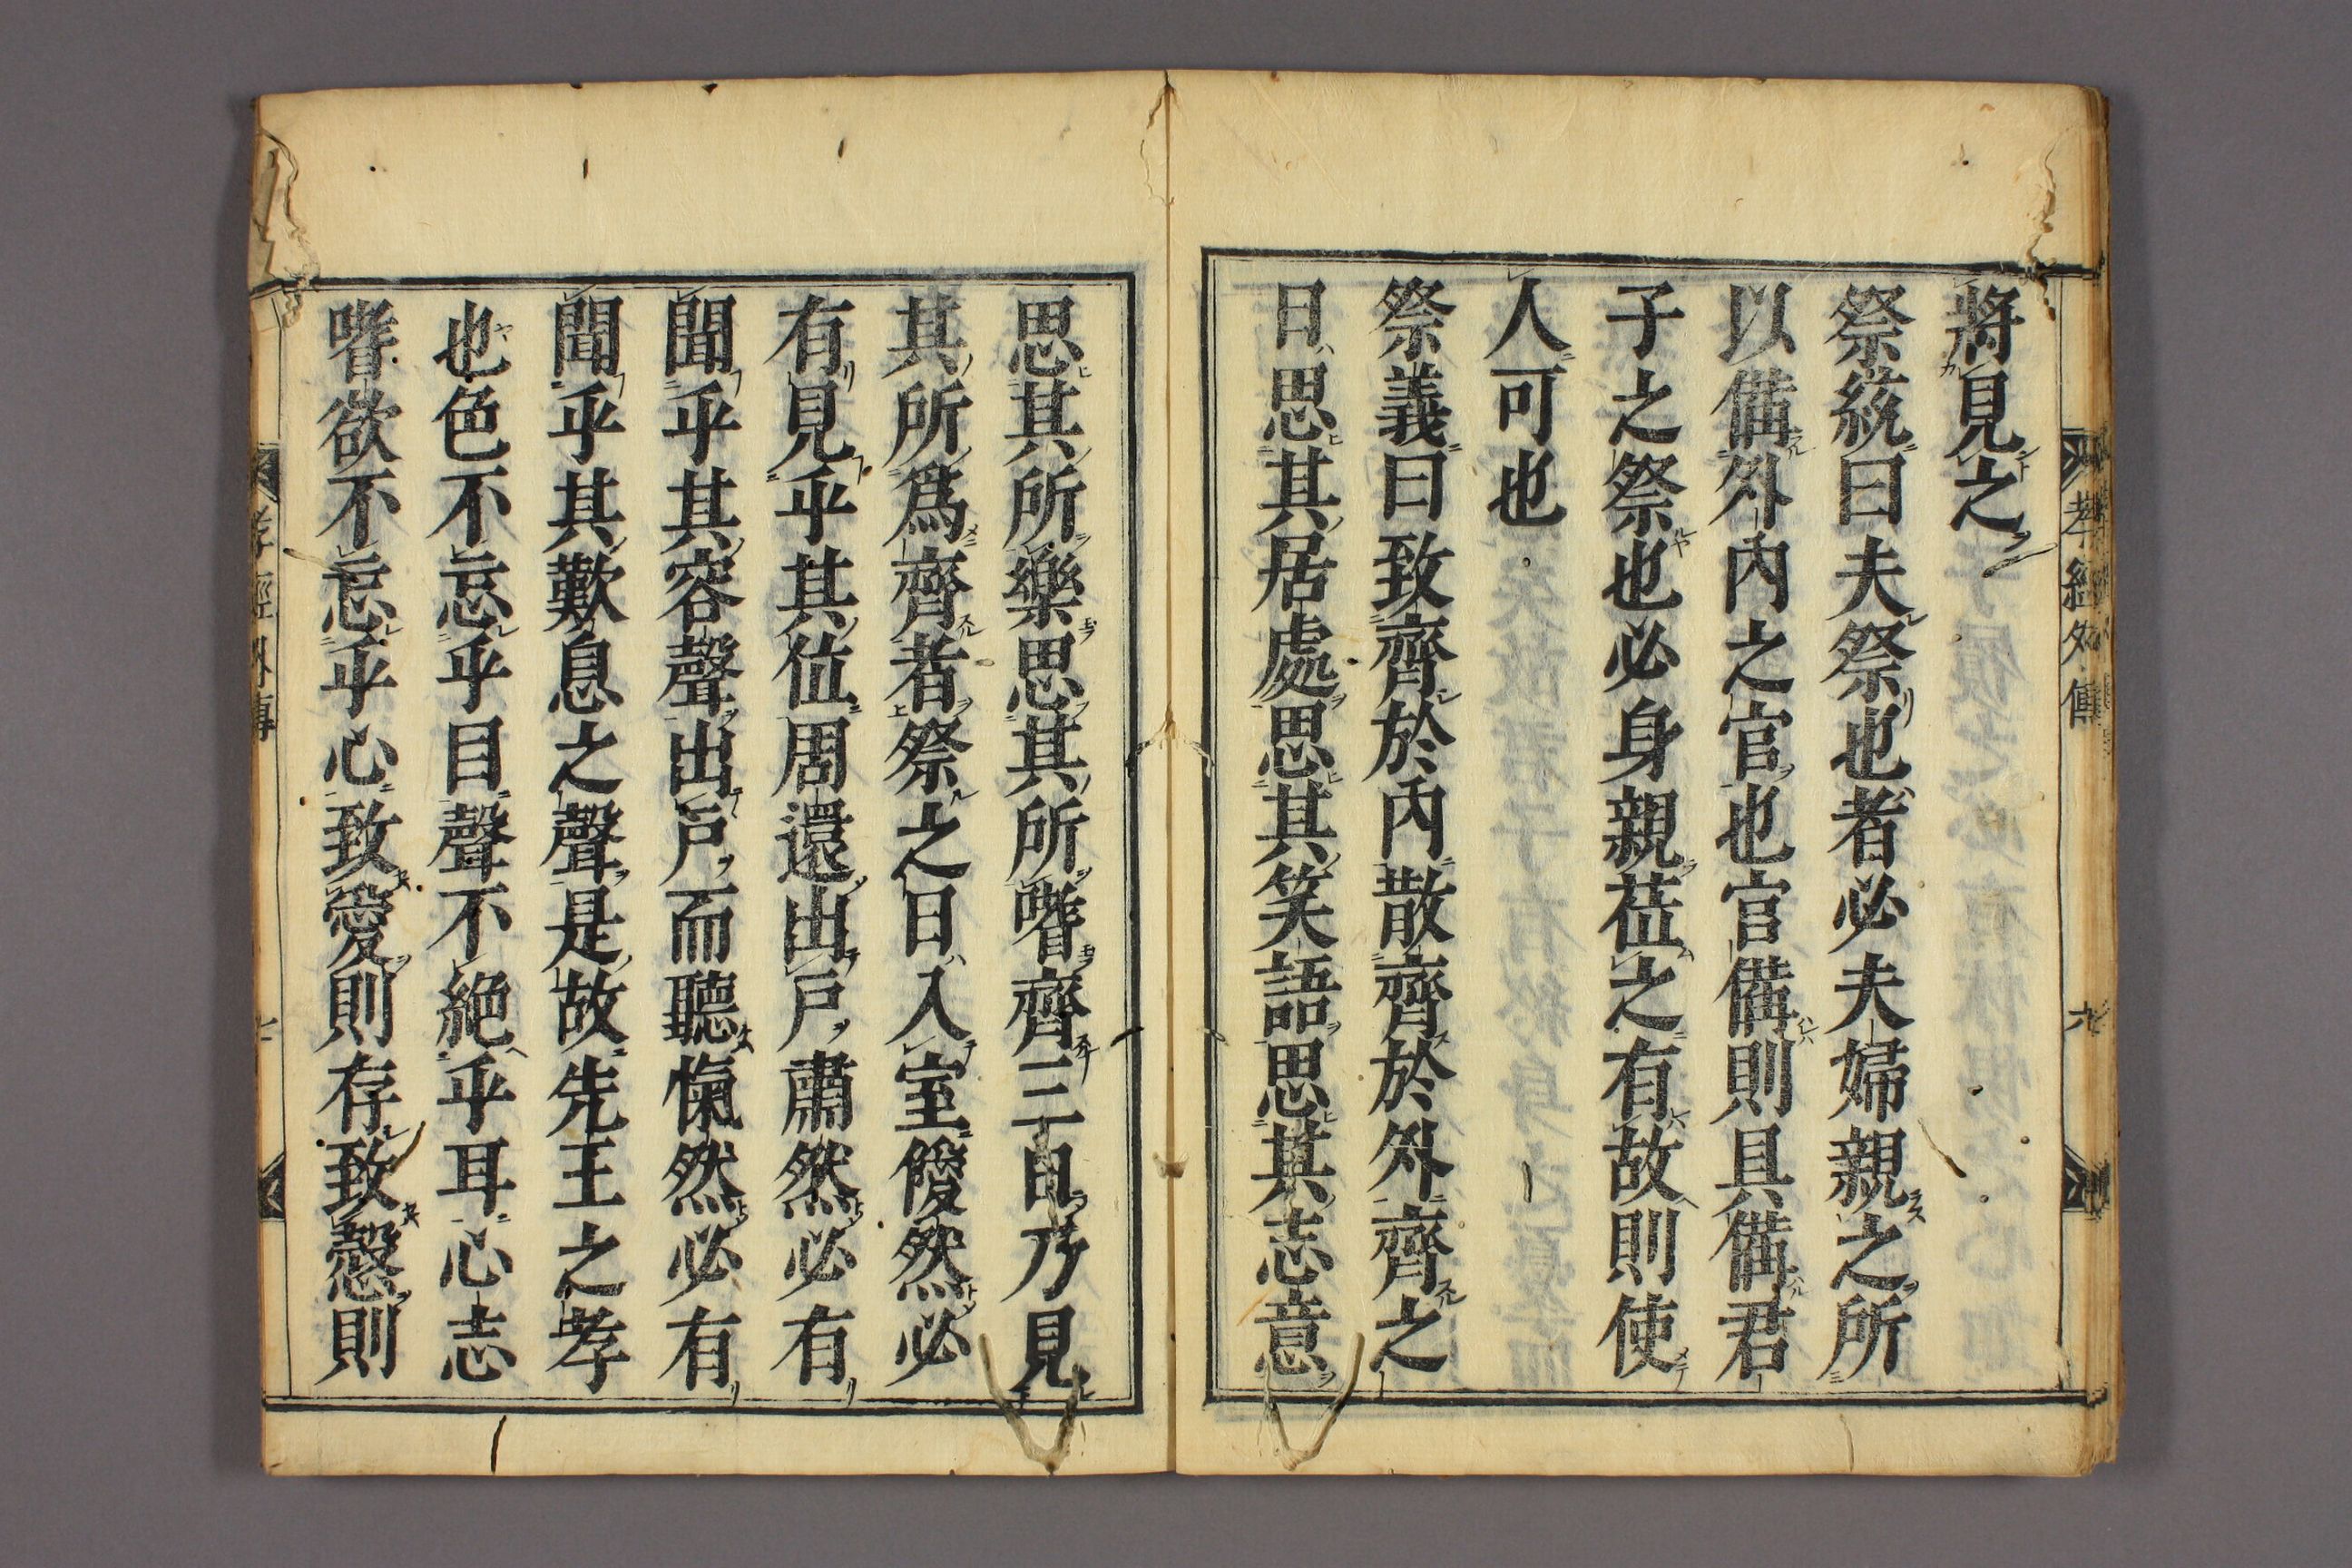 將見之
祭統曰夫祭也者必夫婦親之所
以備外內之官也官備則具備君
子之祭也必身親莅之有故則使
人可也
祭義曰致齊於內散齊於外齊之
日思其居處思其笑語思其志意
孝經外傳
六
思其所樂思其所嗜齊三日乃見
其所爲齊者祭之日入室僾然必
有見乎其位周還出戶肅然必有
聞乎其容聲出戶而聽愾然必有
聞乎其歎息之聲是故先王之孝
也色不忘乎目聲不絕乎耳心志
嗜欲不忘乎心致愛則存致慤則
孝經外傳